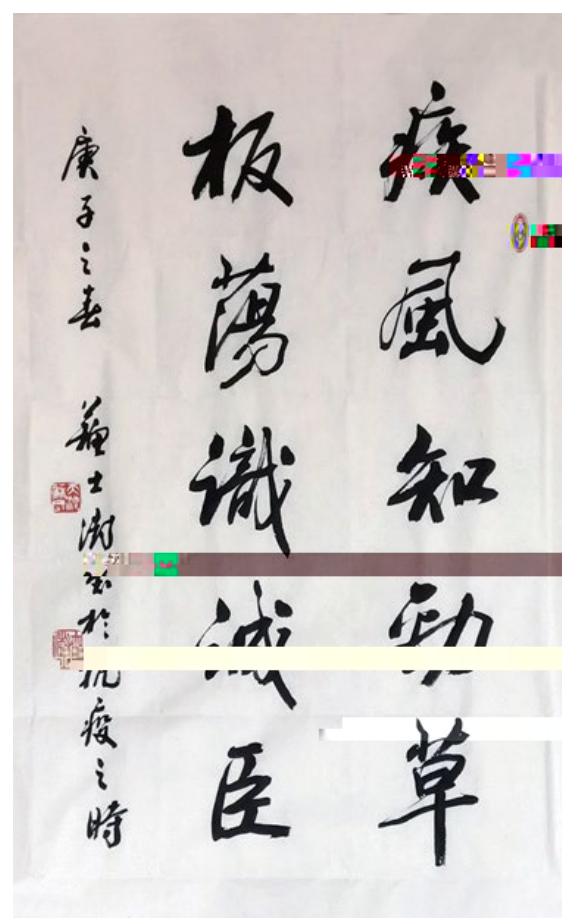 疾風知勁草
板蕩識誠臣
庚子之春 蘇士澍書於抗疫之時